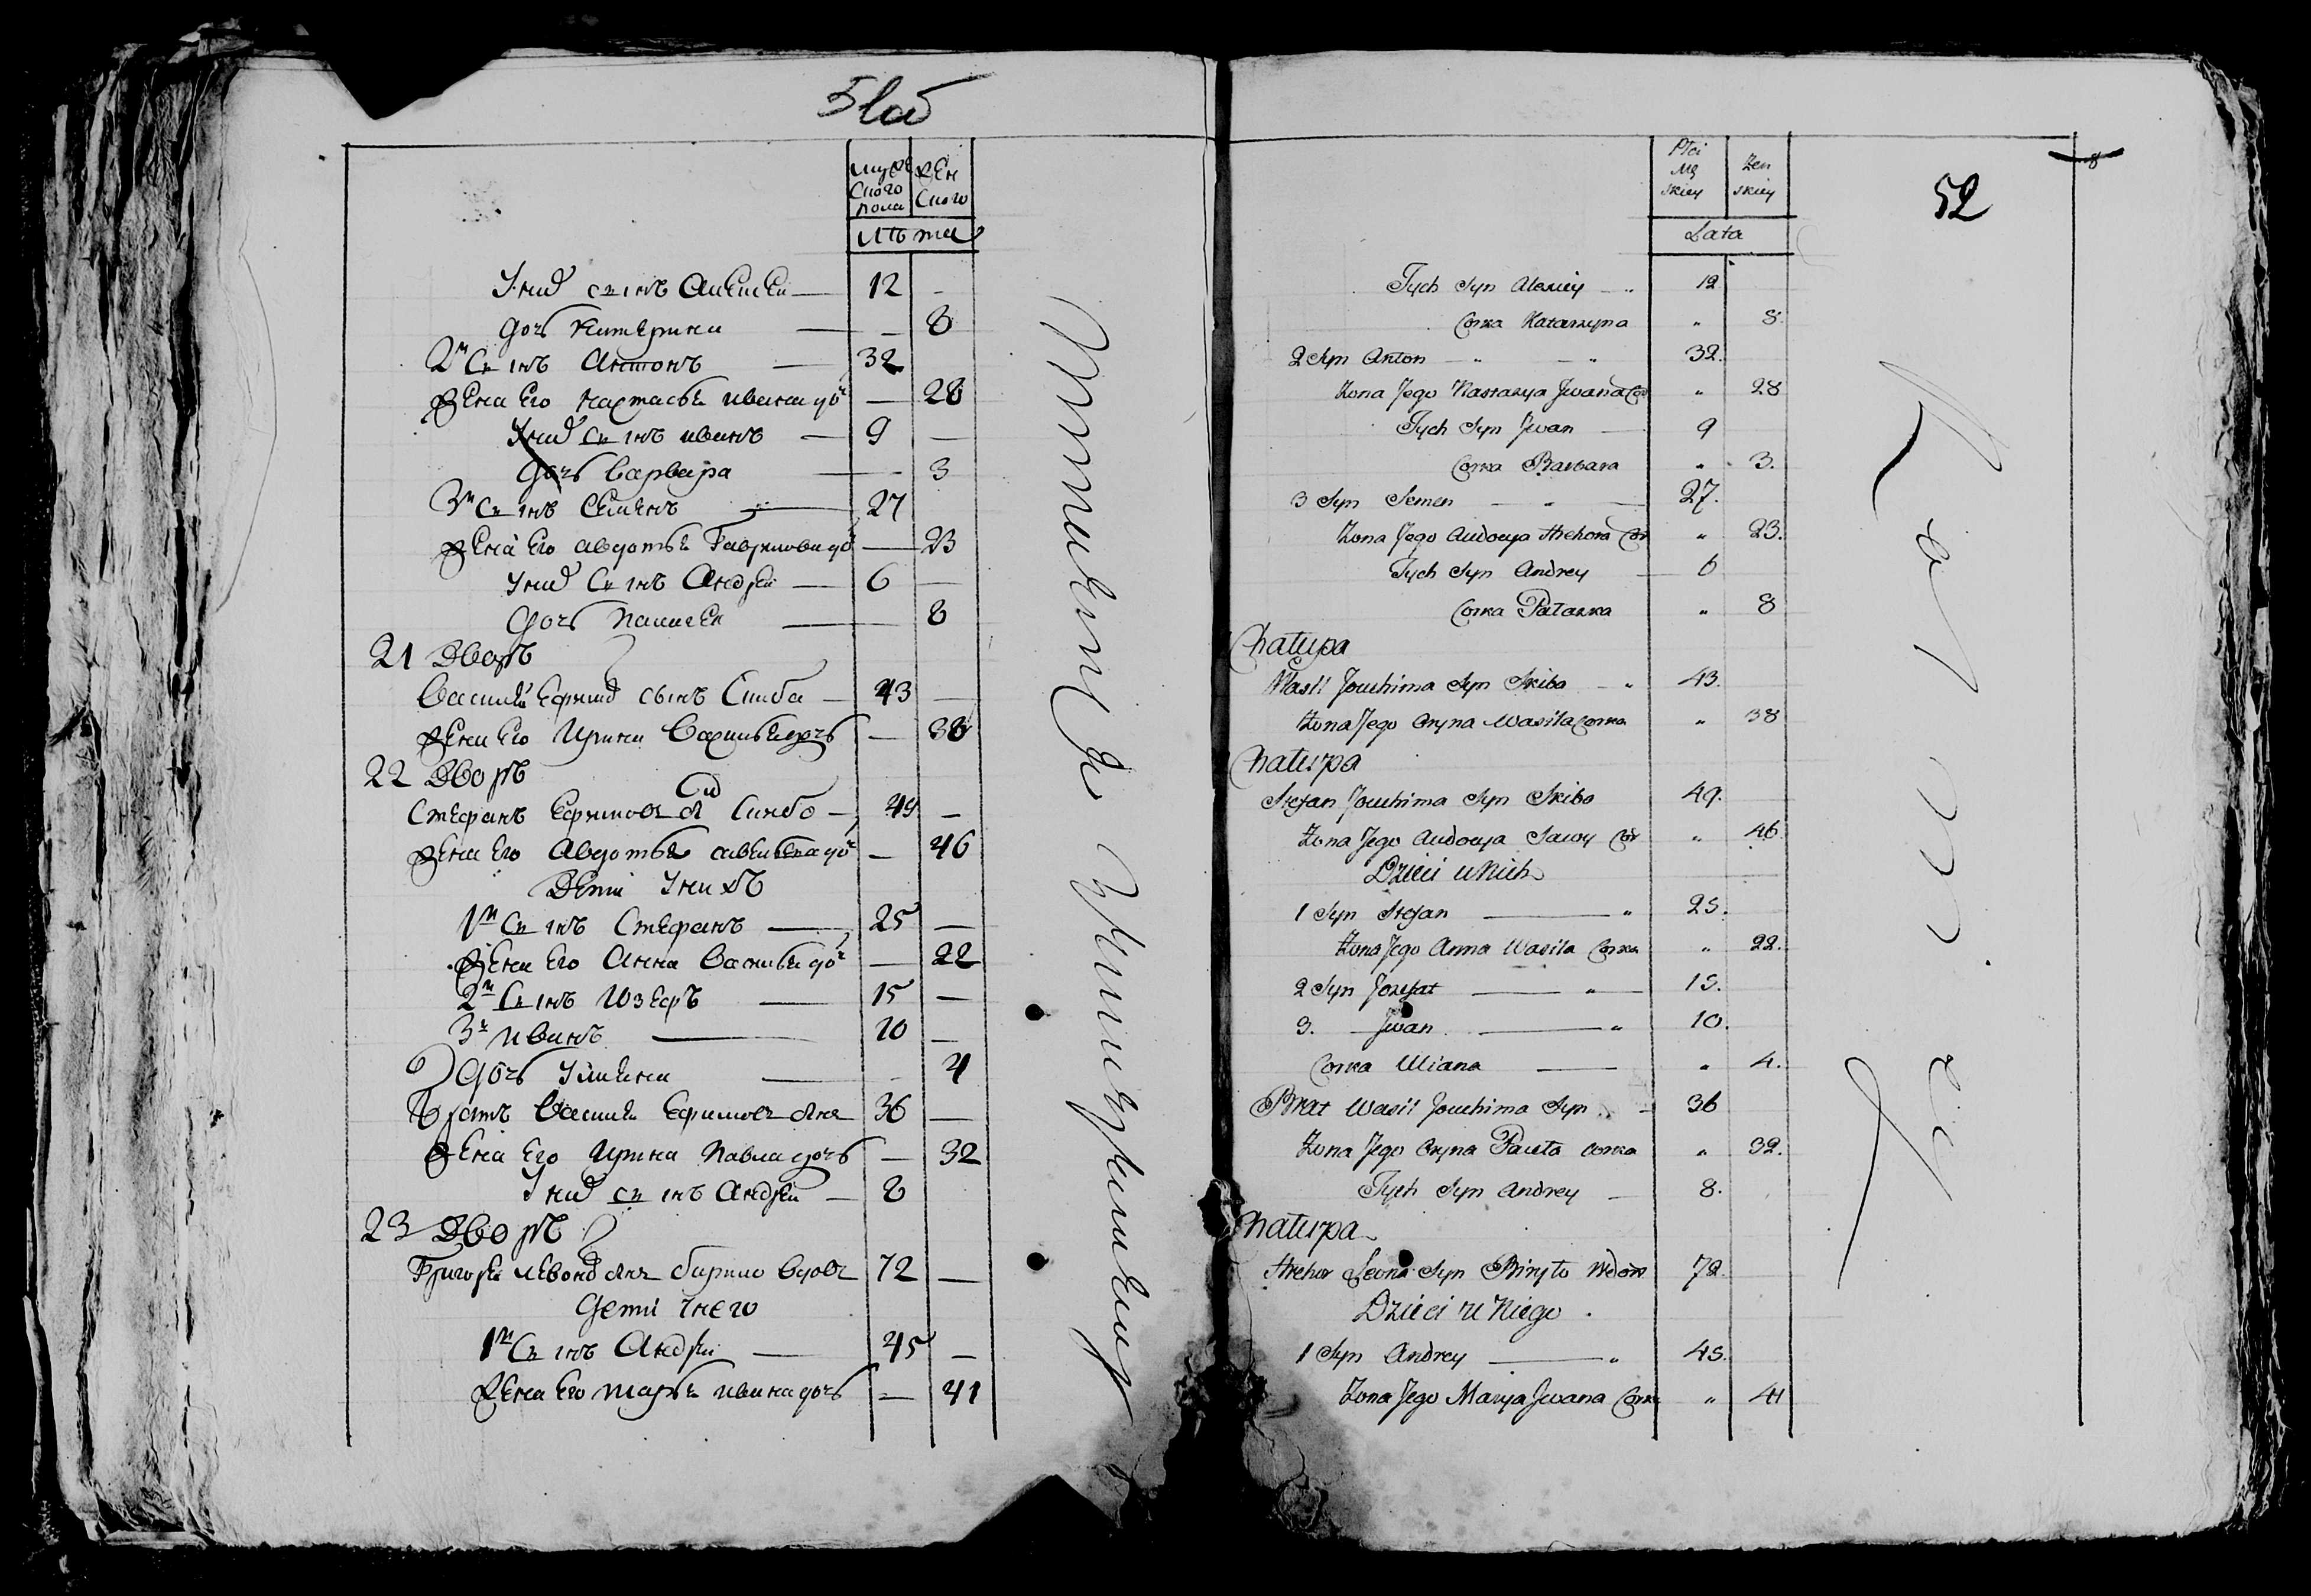 51об
Мужеского пола
Женского
Лѣта
У нихъ сынъ Алексей — 12 —
дочь Катерина — — 8
2й Сынъ Антонъ — 32
жена Его Настасья ивана доч — 28
У нихъ сынъ иванъ — 9 —
дочь Варвара — — 3
3й Сынъ Семенъ — 27
жена Его авдотья Гаврилова до — 23
У нихъ Сынъ Андрей — 6 —
дочь — 8
21 Дворъ
Василий Ефима сынъ Скиба — 43 —
жена Его Ирина Василья дочь — 38
22 Дворъ
Стефанъ Ефимовъ Скибо — 49 —
жена Его Авдотья доч — 46
Дети У нихъ
1й Сынъ Стефанъ — 25 —
жена Его Анна Василья доч — 22
2й Сынъ Юзефъ — 15 —
3й иванъ — 10 —
дочь Ульяна — - 4
Братъ Василий Ефимовъ — 36 —
жена Его Ирина Павла дочь — 32
У них сынъ Андрей — 8
23 Дворъ
Григорей Левона Бирило вдовъ 72 —
дети У него
1й Сынъ Андрей — 45 —
жена Его Марья ивана дочь — 41
Płci Mę skiey
Żen skiey
52
8
Lata
Tych Syn Alexiey — „ 12
Corka Katarzyna „ 8.
2 Syn Anton — „ — „ 32.
Żona Jego Nastazya Jwana Cor „ 28
Tych Syn Jwan — 9
Corka Barbara „ 3.
3 Syn Semen — „ — 27.
Żona Jego Audocya Hrehora Cor „ 23.
Tych Syn Andrey — 6
Corka Patazka „ 8
Chatupa
Wasil Jouchima Syn Skibo — „ 43.
Żona Jego Oryna Wasila Corka „ 38
Chatupa
Stefan Jouchima Syn Skibo 49.
Żona Jego Audocya Sawy Cor „ 46
Dzieci u Nich
1 Syn Stefan — „ 25.
Żona Jego Anna Wasila Corka „ 22.
2 Syn Jozefat — „ — 15.
3. — Jwan — „ 10.
Corka Uliana — „ 4.
Brat Wasil Jouchima Syn — 36
Żona Jego Oryna Pauła Corka „ 32.
Tych Syn Andrey — 8.
Chatupa
Hrehor Leona Syn Biryło Wdow 72.
Dzieci u Niego
1 Syn Andrey — „ 45.
Żona Jego Marya Jwana Corka „ 41